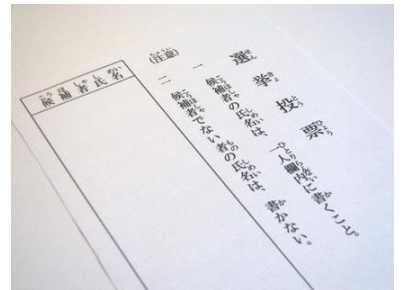 選挙投票
(注意)
一 候補者の氏名は、一人欄内に書くこと。
二 候補者でない者の氏名は、書かない。
候補者氏名